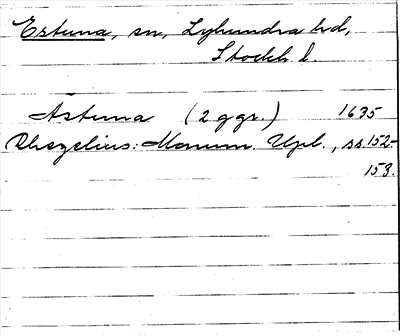 Estuna, sn, Lyhundra hd,
Stockh. l.
Åstuna (2 ggr.) 1635
Rhezelius: Monum. Upl., ss. 152-
153.